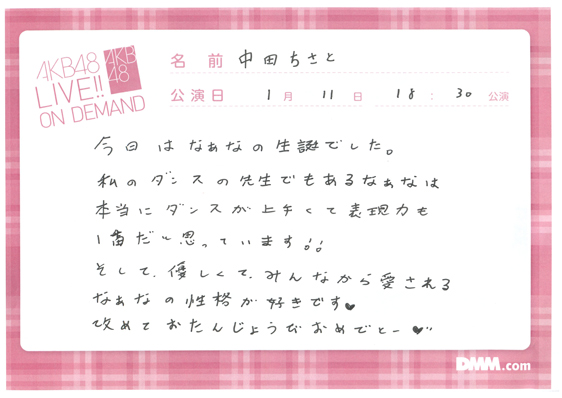 AKB48
LIVE!!
ON DEMAND
AKB
48
名前 中田ちさと
公演日 1月 11日 18:30公演
今日はなぁなの生誕でした。
私のダンスの先生でもあるなぁなは
本当にダンスが上手くて表現力も
1番だと思っています!!
そして、優しくて、みんなから愛される
なぁなの性格が好きです♥
改めておたんじょうびおめでとー♥
DMM.com